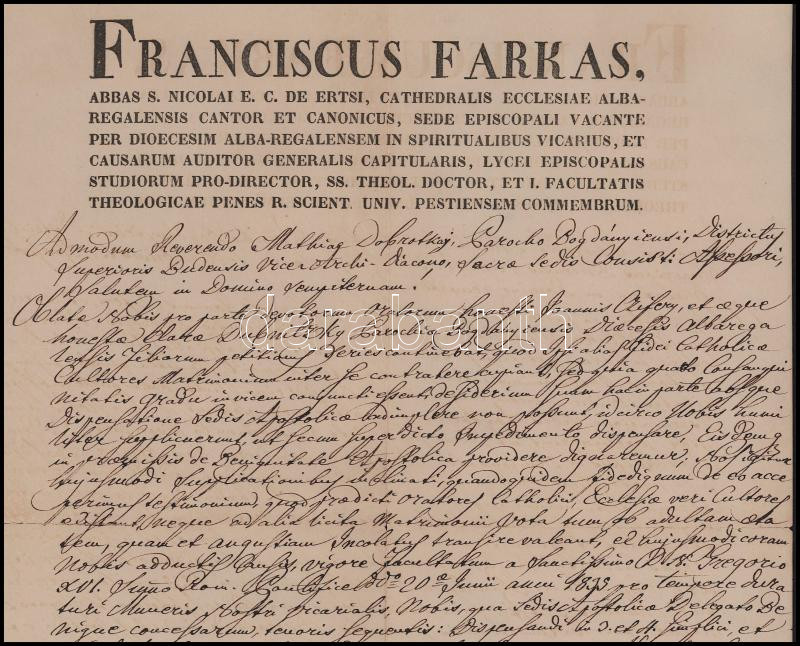 FRANCISCUS FARKAS,
ABBAS S. NICOLAI E. C. DE ERTSI, CATHEDRALIS ECCLESIAE ALBA-
REGALENSIS CANTOR ET CANONICUS, SEDE EPISCOPALI VACANTE
PER DIOECESIM ALBA-REGALENSEM IN SPIRITUALIBUS VICARIUS, ET
CAUSARUM AUDITOR GENERALIS CAPITULARIS, LYCEI EPISCOPALIS
STUDIORUM PRO-DIRECTOR, SS. THEOL. DOCTOR, ET I. FACULTATIS
THEOLOGICAE PENES R. SCIENT. UNIV. PESTIENSEM COMMEMBRUM.
Admodum Reverendo Mathiae Parocho Bogdányiensi, Districtus
Superioris Budensis Vice-Archi-Diacono, Sacrae Sedis Consist: Assessori,
Salutem in Domino Sempiternam.
Oblata Nobis pro parte devotorum oratorum honesti Joannis et aeque
honestae Clarae Parochia Bogdányiensis Dioecesis Albarega
lensis filiorum petitionis series continebat, quod ipsi alias fidei Catholicae
Cultores Matrimonium inter se contrahere cupiant, sed quia quarto Consangui
nitatis gradu invicem conjuncti essent, desiderium suum hac in parte absque
Dispensatione Sedis Apostolicae adimplere non possent, idcirco Nobis humi
liter supplicaverunt, ut secum super dicto Impedimento dispensare, Eisdemq
in praemissis de Benignitate Apostolica providere dignaremur, Nos igitur
hujusmodi Supplicationibus inclinati, quandoquidem fide dignum de eo acce
perimus testimonium, quod praedicti oratores Catholicae Ecclesiae veri Cultores
existant, neque ad alia licita Matrimonii vota tum ob adultam aeta
tem, quam et angustiam Incolatus transire valeant, ex hujusmodi coram
Nobis adductis Causis, vigore facultatum a Sanctissimo D. N. Gregorio
XVI. Summo Rom. Pontifice ddo 20ae Junii anni 1835 pro tempore dura
turi Muneris Nostri Vicarialis, Nobis, qua Sedis Apostolicae Delegato Be
nigne concessarum, tenoris sequentis: Dispensandi in 3. et 4. simplici, et
darabanth